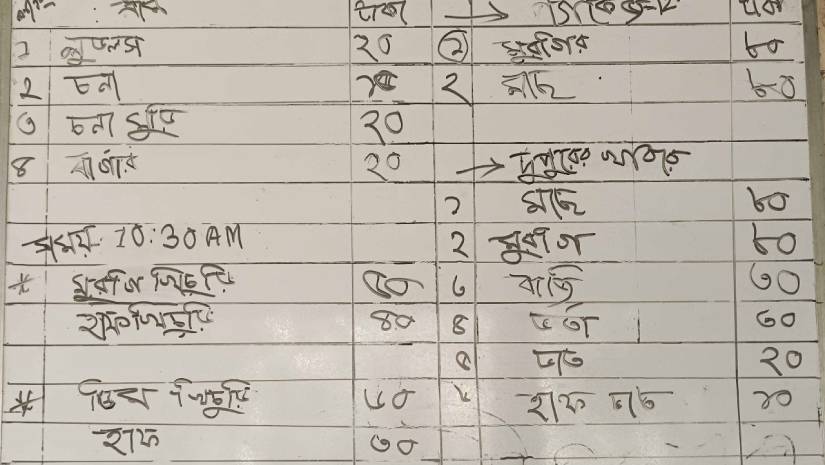 টাকা
১ নুডলস ২০
২ চনা
৩ চনা মুড়ি ২০
৪ বার্গার ২০
সময় 10:30 AM
* মুরগির খিচুড়ি
হাফ খিচুড়ি ৪০
* ডিম খিচুড়ি ৬০
হাফ ৩০
→ টাকা
১ মুরগির ৮০
২ মাছ ৮০
→ দুপুরের খাবার
১ মাছ ৮০
২ মুরগি ৮০
৩ বাজি ৩০
৪ ভর্তা ৩০
৫ ভাত ২০
৬ হাফ ভাত ১০